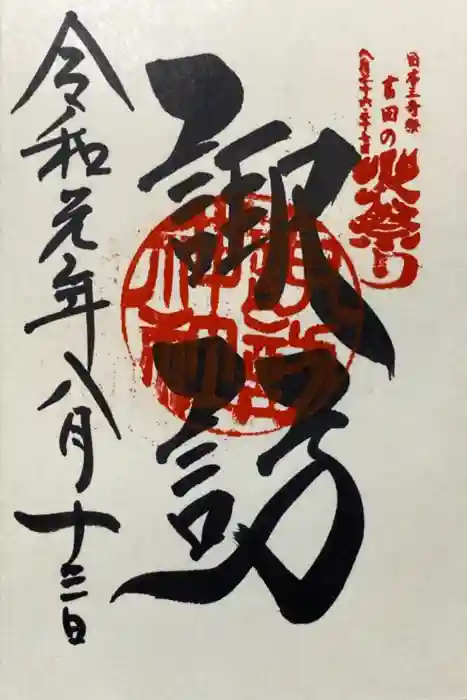 日本三奇祭
吉田の
火祭り
八月二十六・二十七日
諏訪
令和元年八月十三日